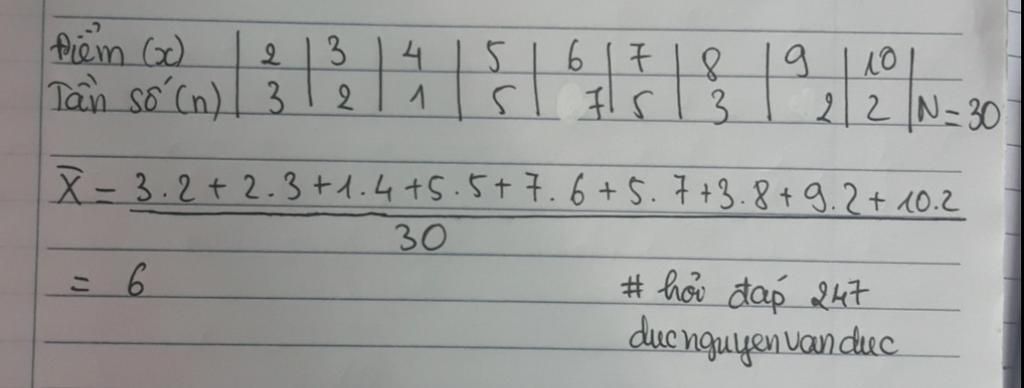 Điểm (x) | 2 | 3 | 4 | 5 | 6 | 7 | 8 | 9 | 10 |
Tần số (n) | 3 | 2 | 1 | 5 | 7 | 5 | 3 | 2 | 2 | N = 30
X̄ = 3.2 + 2.3 + 1.4 + 5.5 + 7.6 + 5.7 + 3.8 + 9.2 + 10.2
30
= 6
# hỏi đáp 247
ducnguyenvanduc